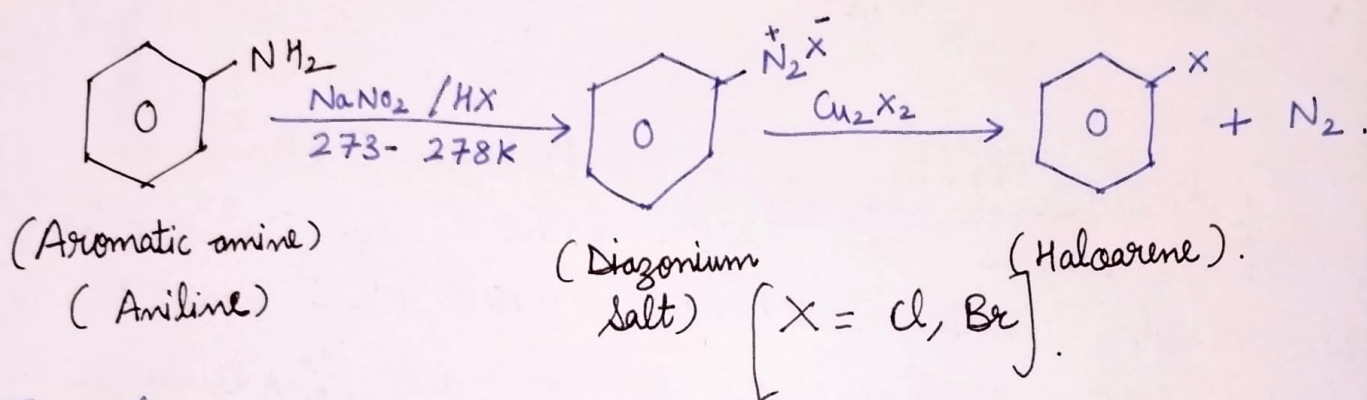 NH₂
NaNO₂ /HX
273- 278K
N₂⁺X⁻
Cu₂X₂
X
+ N₂.
(Aromatic amine)
(Aniline)
(Diazonium
Salt)
(Haloarene).
[X = Cl, Br].